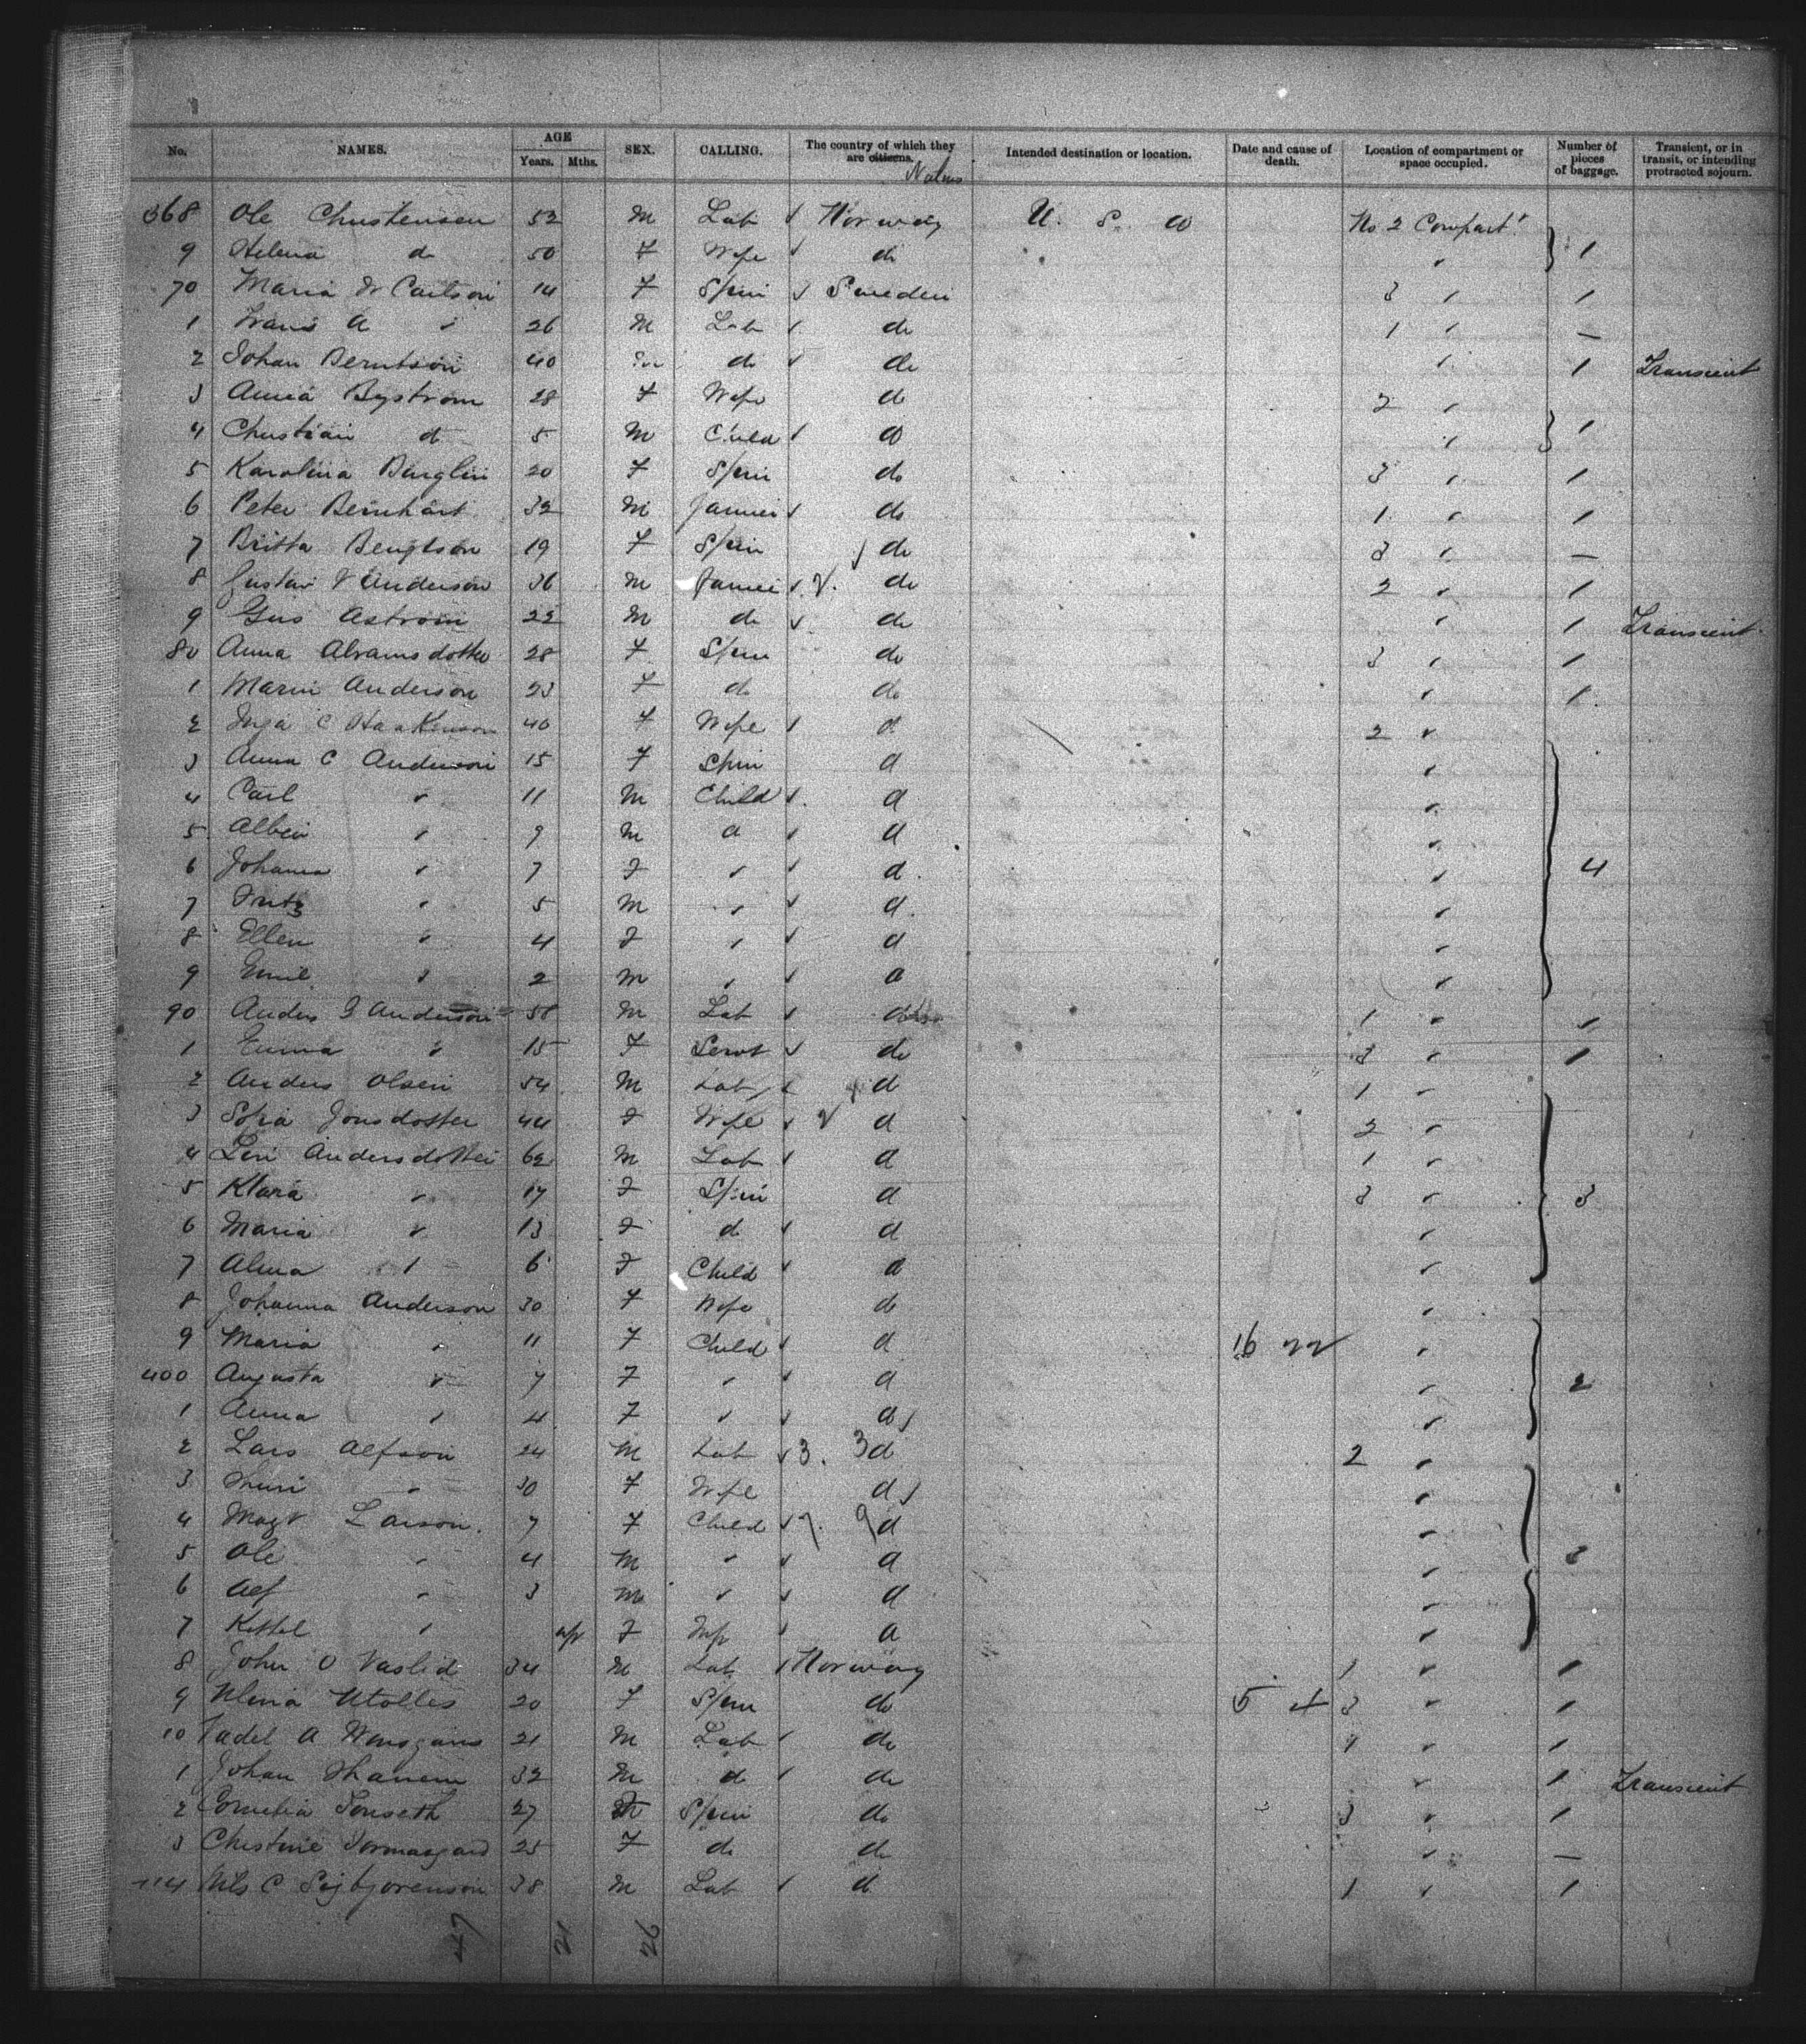 No. NAMES. AGE Years. Mths. SEX. CALLING. The country of which they are citizens. Natives Intended destination or location. Date and cause of death. Location of compartment or space occupied. Number of pieces of baggage. Transient, or in transit, or intending protracted sojourn.
368 Ole Christensen 52 M Lab Norway U. S. A No 2 Compart.
9 Helena do 50 F Wife do " 1
70 Maria W Carlson 14 F Spin Sweden 3 " 1
1 Frans A " 26 M Lab do 1 " —
2 Johan Berntson 40 do do " 1 Transient
3 Anna Bystrom 28 F Wife do 2 "
4 Christian do 5 M Child do " 1
5 Karolina Burglin 20 F Spin do 3 " 1
6 Peter Bernhart 32 M Farmer do 1 " 1
7 Britta Bengtson 19 F Spin do 3 " —
8 Gustav V Anderson 36 M Farmer do 2 " 1
9 Gus Astrom 22 M do do " 1 Transient
80 Anna Abramsdotter 28 F Spin do 3 " 1
1 Marin Anderson 23 F do do " 1
2 Inga C Haakenson 40 F Wife d 2 "
3 Anna C Anderson 15 F Spin d "
4 Carl " 11 M Child d "
5 Albin " 9 M d d "
6 Johanna " 7 F " d " 4
7 Fritz " 5 M " d "
8 Ellen " 4 F " d "
9 Emil " 2 M " d "
90 Anders G Anderson 58 M Lab do 1 " 1
1 Emma " 15 F Servt do 3 " 1
2 Anders Olsen 54 M Lab d 1 "
3 Sofia Jonsdotter 44 F Wife d 2 "
4 Andersdotter 62 M Lab d 1 "
5 Klara " 17 F Spin d 3 " 3
6 Maria " 13 F d d "
7 Alma " 6 F Child d "
8 Johanna Anderson 30 F Wife do "
9 Maria " 11 F Child d 16 "
400 Augusta " 7 F " d " 2
1 Anna " 4 F " d "
2 Lars Alfson 24 M Lab 3. 3 d 2 "
3 " 30 F Wife d "
4 Larson 7 F Child d "
5 Ole " 4 M " d " 3
6 Alf " 3 M " d "
7 Kettel " F Inf d "
8 John O Vaslid 34 M Lab Norway 1 " 1
9 20 F Spin do 5 3 " 1
10 A 21 M Lab do 1 " 1
1 Johan Thanem 32 M do do " 1 Transient
2 Cornelia Tonseth 27 F Spin do 3 " 1
3 Christine 25 F do do " —
414 Nils C Sigbjorenson 38 M Lab d 1 " 1
47 21 26